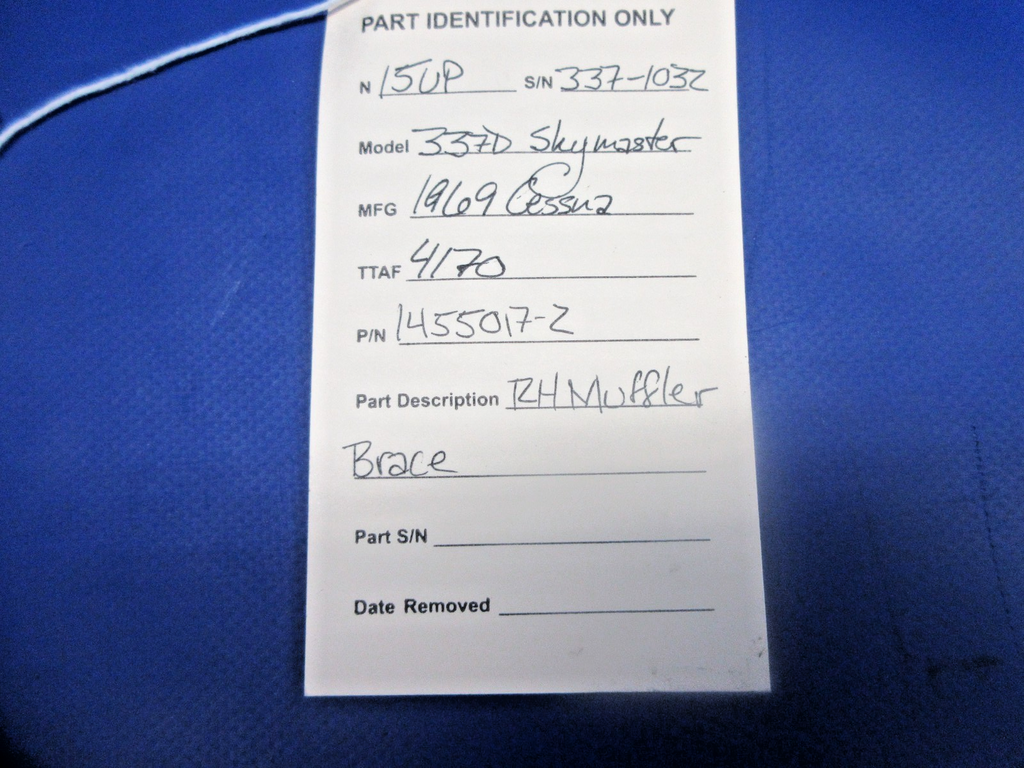 PART IDENTIFICATION ONLY
N 15UP S/N 337-1032
Model 337D Skymaster
MFG 1969 Cessna
TTAF 4170
P/N 1455017-2
Part Description RH Muffler
Brace
Part S/N
Date Removed